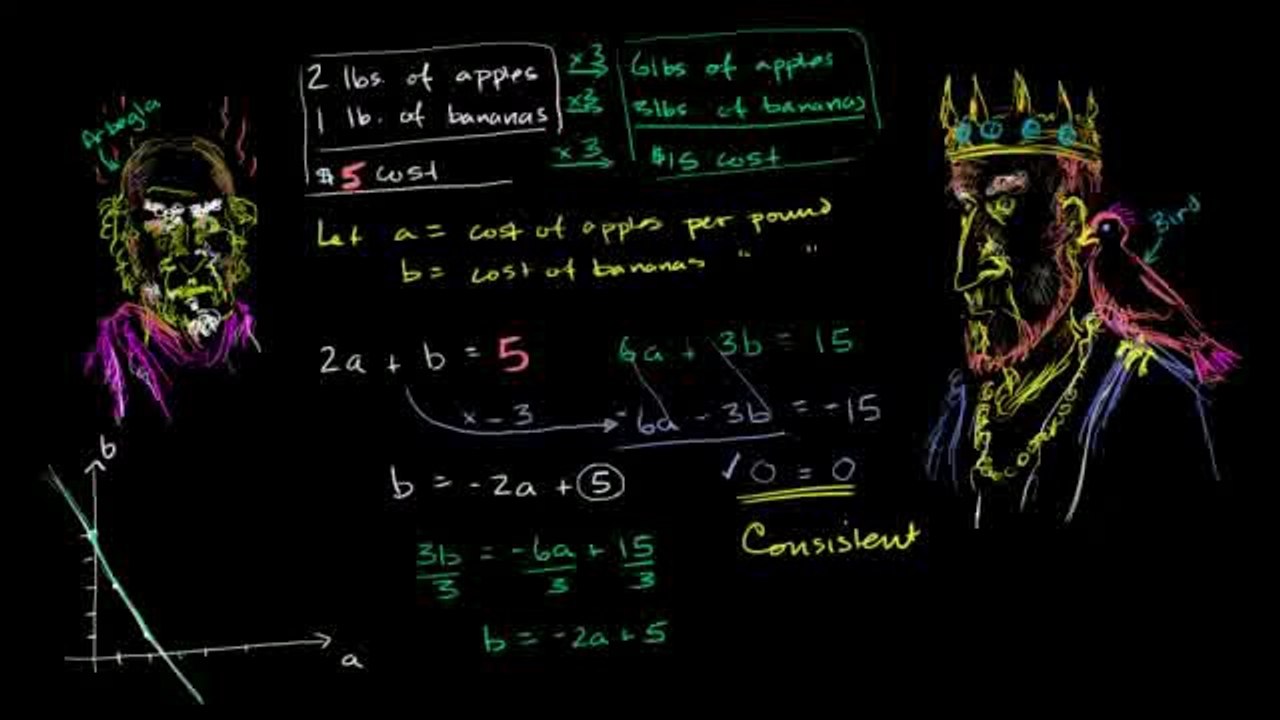 Arbegla
2 lbs. of apples x3 6lbs of apples
1 lb. of bananas x3 3lbs of bananas
$5 cost x3 $15 cost
Let a = cost of apples per pound
b = cost of bananas " "
Bird
2a + b = 5 6a + 3b = 15
x -3 -6a - 3b = -15
b = -2a + 5 ✓ 0 = 0
Consistent
3b = -6a + 15
3 3 3
b = -2a + 5
b
a